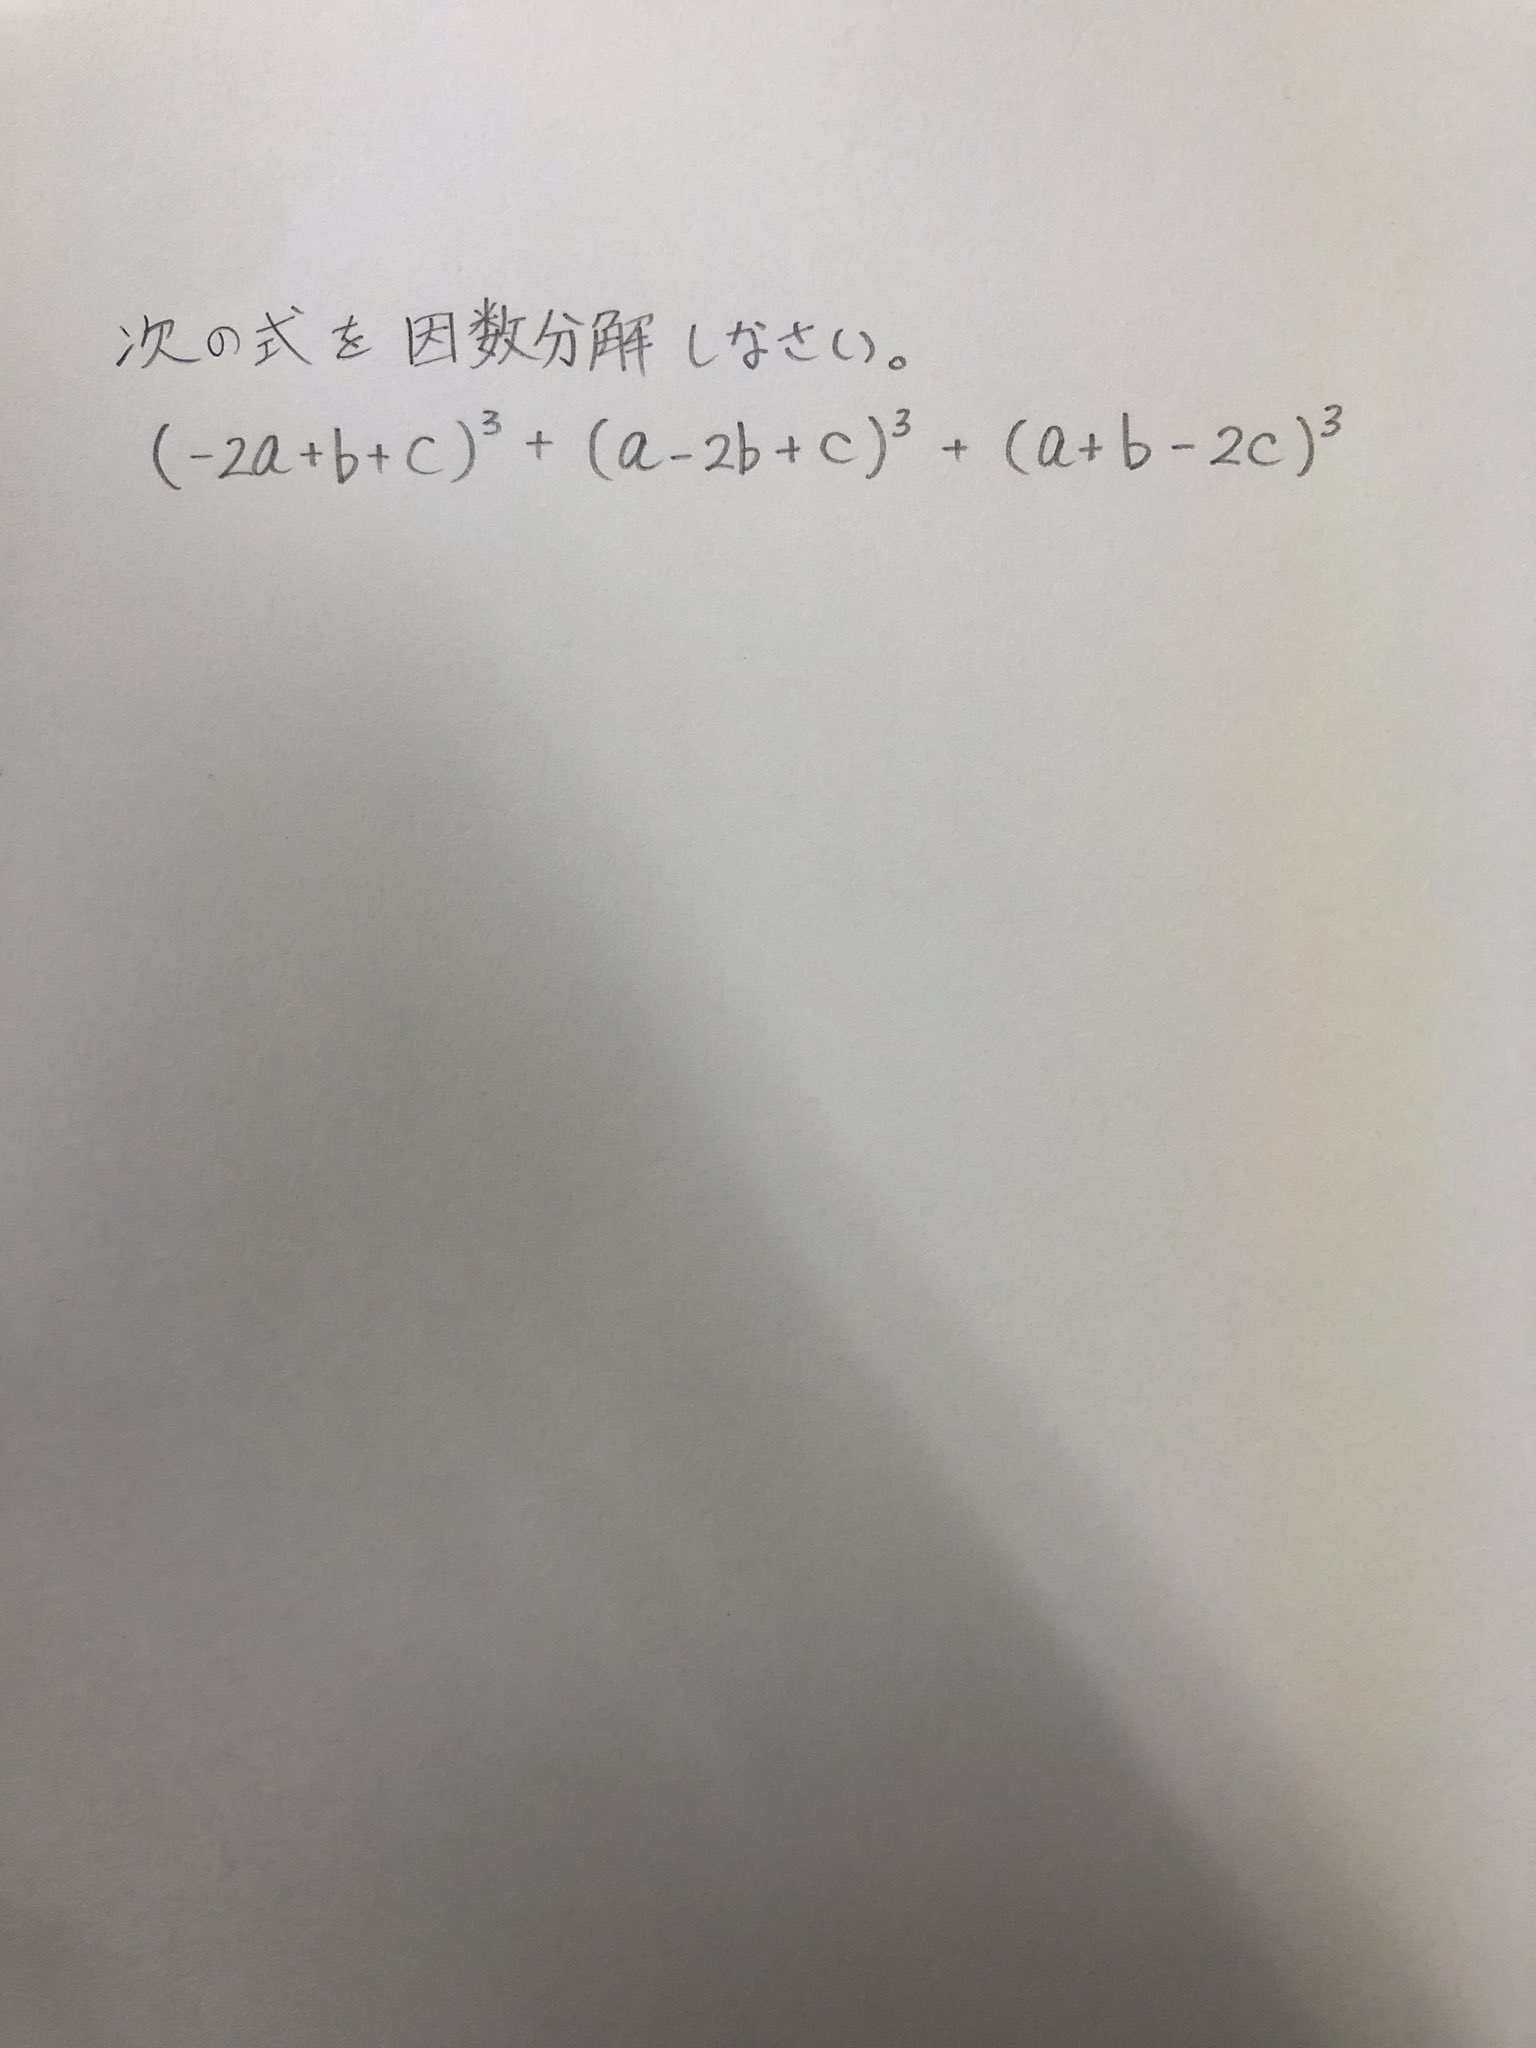 次の式を因数分解しなさい。
(-2a+b+c)³+(a-2b+c)³+(a+b-2c)³